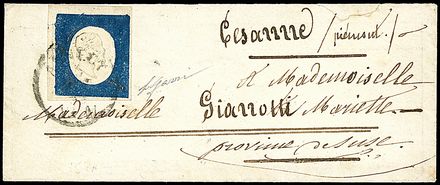 Cesanne /piémont/
A Mademoiselle
Mademoiselle Giarrotti Mariette
province de Suse